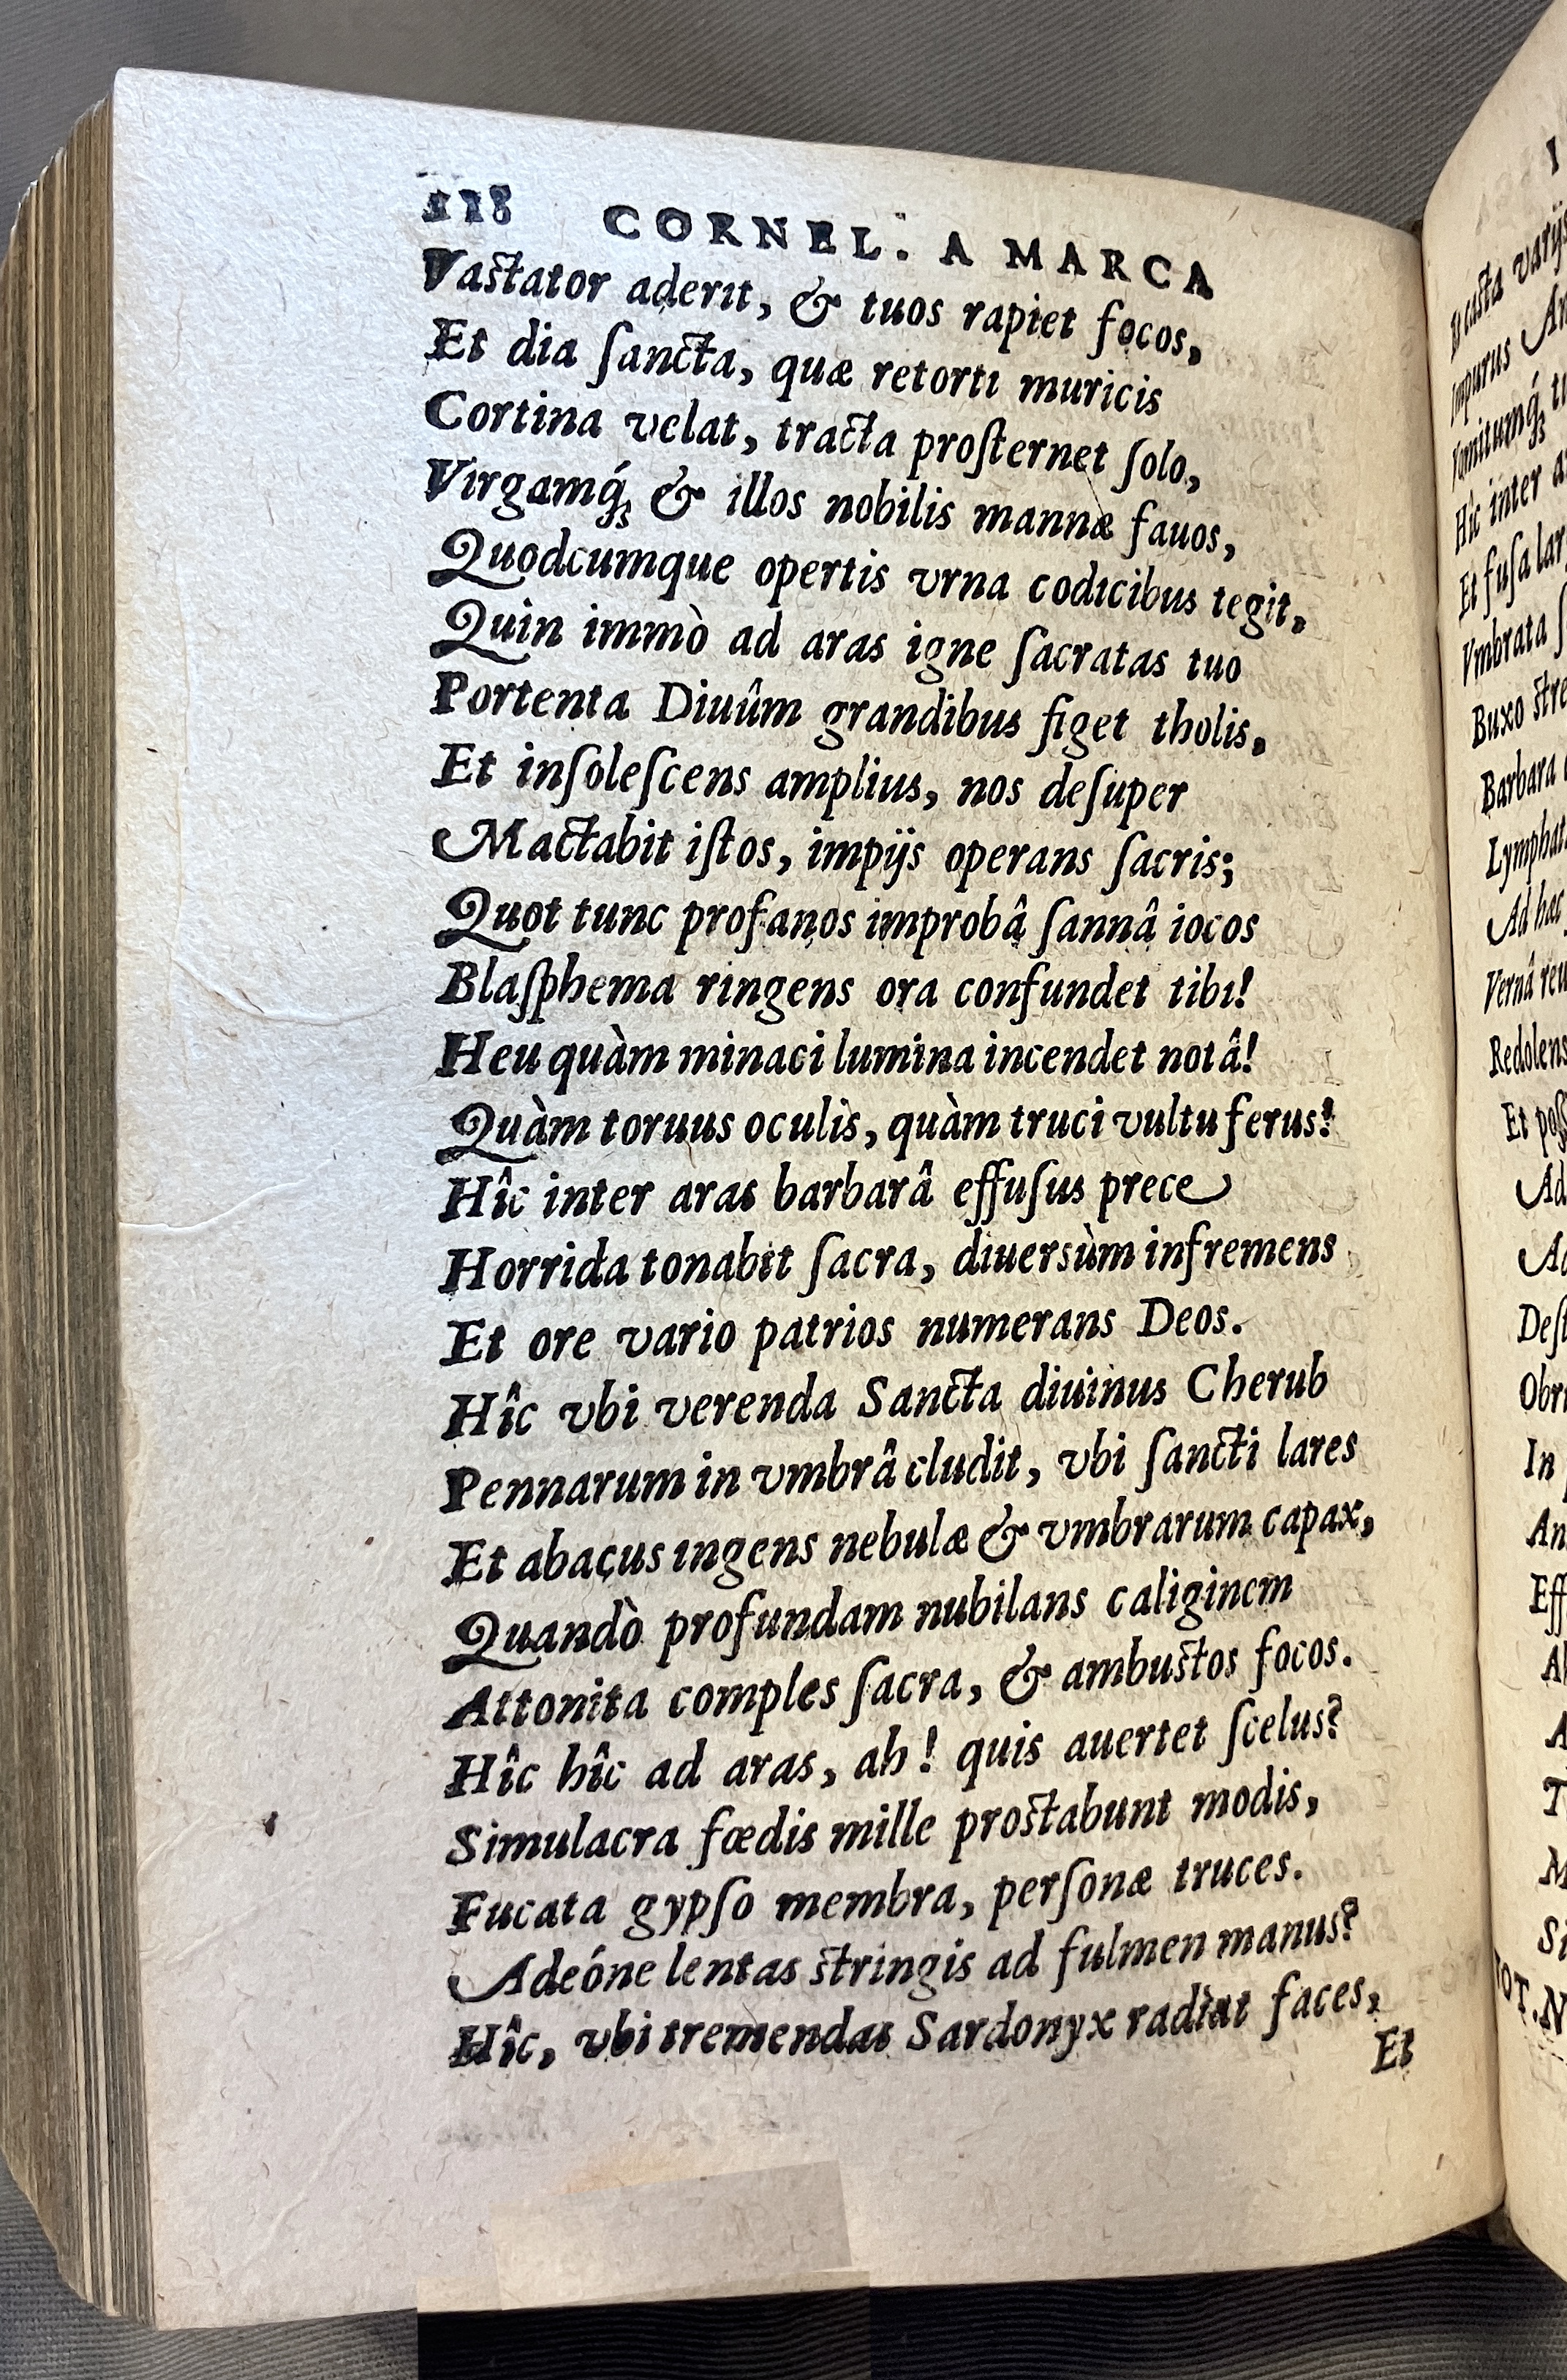 118 CORNEL. A MARCA
Vastator aderit, & tuos rapiet focos,
Et dia ſancta, quæ retorti muricis
Cortina velat, tracta proſternet ſolo,
Virgamq́; & illos nobilis mannæ fauos,
Quodcumque opertis vrna codicibus tegit,
Quin immò ad aras igne ſacratas tuo
Portenta Diuûm grandibus figet tholis,
Et inſoleſcens amplius, nos deſuper
Mactabit iſtos, impijs operans ſacris;
Quot tunc profanos improbâ ſannâ iocos
Blaſphema ringens ora confundet tibi!
Heu quàm minaci lumina incendet notâ!
Quàm toruus oculis, quàm truci vultu ferus!
Hîc inter aras barbarâ effuſus prece
Horrida tonabit ſacra, diuersùm infremens
Et ore vario patrios numerans Deos.
Hîc vbi verenda Sancta diuinus Cherub
Pennarum in vmbrâ cludit, vbi ſancti lares
Et abacus ingens nebulæ & vmbrarum capax,
Quandò profundam nubilans caliginem
Attonita comples ſacra, & ambustos focos.
Hîc hîc ad aras, ah! quis auertet ſcelus?
Simulacra fœdis mille prostabunt modis,
Fucata gypſo membra, perſonæ truces.
Adeóne lentas stringis ad fulmen manus?
Hîc, vbi tremendas Sardonyx radiat faces,
Et
Et casta varijs
Impurus
Hîc inter
Et fuſa
Vmbrata
Buxo
Barbara
Ad hac
Vernâ
Redolens
Et
In